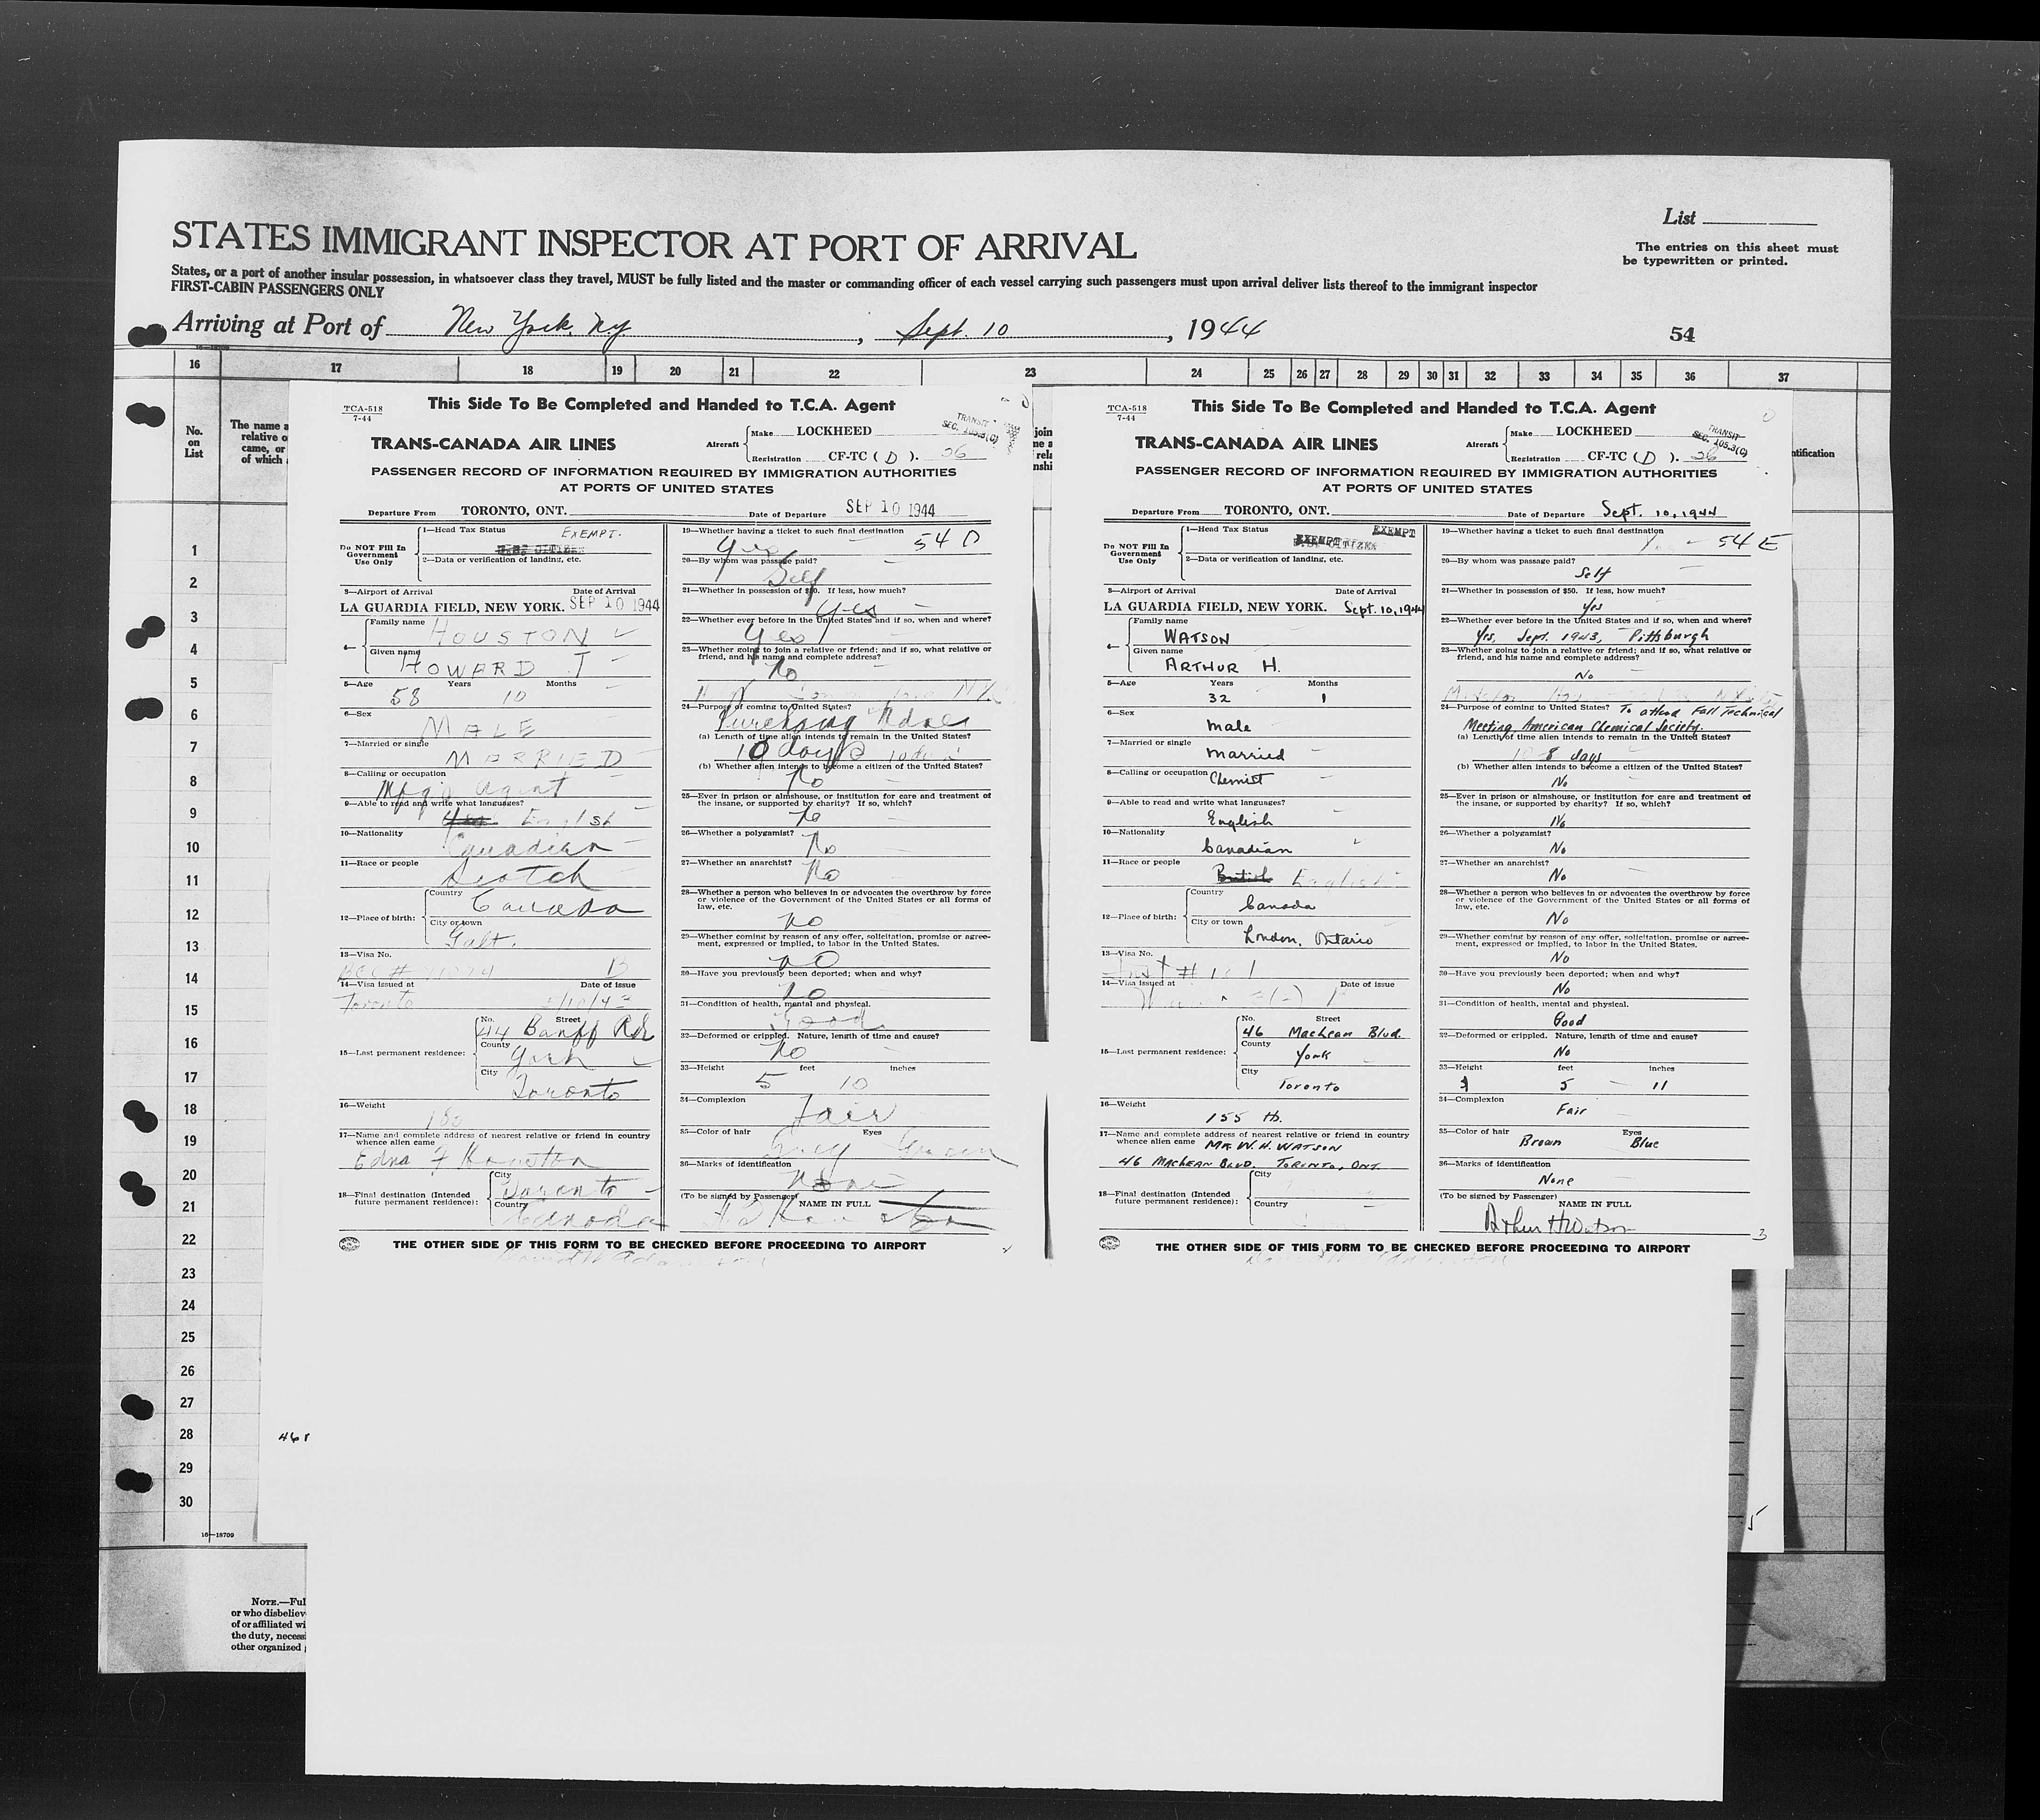 List
STATES IMMIGRANT INSPECTOR AT PORT OF ARRIVAL
The entries on this sheet must
be typewritten or printed.
States, or a port of another insular possession, in whatsoever class they travel, MUST be fully listed and the master or commanding officer of each vessel carrying such passengers must upon arrival deliver lists thereof to the immigrant inspector
FIRST-CABIN PASSENGERS ONLY
Arriving at Port of New York, NY, Sept. 10, 1944
54
16 17 18 19 20 21 22 23 24 25 26 27 28 29 30 31 32 33 34 35 36 37
No.
on
List
The name a
relative o
came, or
of which
1
2
3
4
5
6
7
8
9
10
11
12
13
14
15
16
17
18
19
20
21
22
23
24
25
26
27
28
29
30
16—18709
NOTE.—Ful
or who disbeliev
of or affiliated wi
the duty, necess
other organized
TCA-518
7-44
This Side To Be Completed and Handed to T.C.A. Agent
TRANS-CANADA AIR LINES
Aircraft
Make LOCKHEED
Registration CF-TC ( D ). 26
TRANSIT
SEC. 105.3(C)
PASSENGER RECORD OF INFORMATION REQUIRED BY IMMIGRATION AUTHORITIES
AT PORTS OF UNITED STATES
Departure From TORONTO, ONT. Date of Departure SEP 10 1944
Do NOT Fill In
Government
Use Only
1—Head Tax Status EXEMPT.
2—Data or verification of landing, etc.
3—Airport of Arrival Date of Arrival
LA GUARDIA FIELD, NEW YORK. SEP 10 1944
4— Family name HOUSTON
Given name HOWARD J
5—Age 58 Years 10 Months
6—Sex MALE
7—Married or single MARRIED
8—Calling or occupation Mfg's Agent
9—Able to read and write what languages? English
10—Nationality Canadian
11—Race or people Scotch
12—Place of birth: Country Canada
City or town Galt.
13—Visa No.
14—Visa issued at Date of issue
Toronto
15—Last permanent residence: No. Street 44 Banff Rd
County York
City Toronto
16—Weight
17—Name and complete address of nearest relative or friend in country
whence alien came
Edna F Houston
18—Final destination (Intended
future permanent residence):
City Toronto
Country Canada
19—Whether having a ticket to such final destination
Yes 54 D
20—By whom was passage paid?
Self
21—Whether in possession of $50. If less, how much?
Yes
22—Whether ever before in the United States and if so, when and where?
Yes
23—Whether going to join a relative or friend; and if so, what relative or
friend, and his name and complete address?
No
24—Purpose of coming to United States?
Purchasing
(a) Length of time alien intends to remain in the United States?
10 days
(b) Whether alien intends to become a citizen of the United States?
No
25—Ever in prison or almshouse, or institution for care and treatment of
the insane, or supported by charity? If so, which?
No
26—Whether a polygamist? No
27—Whether an anarchist? No
28—Whether a person who believes in or advocates the overthrow by force
or violence of the Government of the United States or all forms of
law, etc.
No
29—Whether coming by reason of any offer, solicitation, promise or agree-
ment, expressed or implied, to labor in the United States.
No
30—Have you previously been deported; when and why?
No
31—Condition of health, mental and physical.
Good
32—Deformed or crippled. Nature, length of time and cause?
No
33—Height 5 feet 10 inches
34—Complexion Fair
35—Color of hair Grey Eyes Green
36—Marks of identification None
(To be signed by Passenger) NAME IN FULL
THE OTHER SIDE OF THIS FORM TO BE CHECKED BEFORE PROCEEDING TO AIRPORT
TCA-518
7-44
This Side To Be Completed and Handed to T.C.A. Agent
TRANS-CANADA AIR LINES
Aircraft
Make LOCKHEED
Registration CF-TC ( D ). 26
TRANSIT
SEC. 105.3(C)
PASSENGER RECORD OF INFORMATION REQUIRED BY IMMIGRATION AUTHORITIES
AT PORTS OF UNITED STATES
Departure From TORONTO, ONT. Date of Departure Sept. 10, 1944
Do NOT Fill In
Government
Use Only
1—Head Tax Status EXEMPT
2—Data or verification of landing, etc.
3—Airport of Arrival Date of Arrival
LA GUARDIA FIELD, NEW YORK. Sept. 10, 1944
4— Family name WATSON
Given name ARTHUR H.
5—Age 32 Years 1 Months
6—Sex Male
7—Married or single Married
8—Calling or occupation Chemist
9—Able to read and write what languages? English
10—Nationality Canadian
11—Race or people British English
12—Place of birth: Country Canada
City or town London, Ontario
13—Visa No.
14—Visa issued at Date of issue
15—Last permanent residence: No. Street 46 MacLean Blvd.
County York
City Toronto
16—Weight 155 lb.
17—Name and complete address of nearest relative or friend in country
whence alien came MR W. H. WATSON
46 MACLEAN BLVD. TORONTO, ONT.
18—Final destination (Intended
future permanent residence):
City
Country
19—Whether having a ticket to such final destination
54 E
20—By whom was passage paid?
Self
21—Whether in possession of $50. If less, how much?
Yes
22—Whether ever before in the United States and if so, when and where?
Yes, Sept. 1943, Pittsburgh
23—Whether going to join a relative or friend; and if so, what relative or
friend, and his name and complete address?
No
24—Purpose of coming to United States? To attend Fall Technical
Meeting, American Chemical Society.
(a) Length of time alien intends to remain in the United States?
8 days
(b) Whether alien intends to become a citizen of the United States?
No
25—Ever in prison or almshouse, or institution for care and treatment of
the insane, or supported by charity? If so, which?
No
26—Whether a polygamist?
No
27—Whether an anarchist?
No
28—Whether a person who believes in or advocates the overthrow by force
or violence of the Government of the United States or all forms of
law, etc.
No
29—Whether coming by reason of any offer, solicitation, promise or agree-
ment, expressed or implied, to labor in the United States.
No
30—Have you previously been deported; when and why?
No
31—Condition of health, mental and physical.
Good
32—Deformed or crippled. Nature, length of time and cause?
No
33—Height 5 feet 11 inches
34—Complexion Fair
35—Color of hair Brown Eyes Blue
36—Marks of identification
None
(To be signed by Passenger) NAME IN FULL
Arthur H Watson
3
THE OTHER SIDE OF THIS FORM TO BE CHECKED BEFORE PROCEEDING TO AIRPORT
5